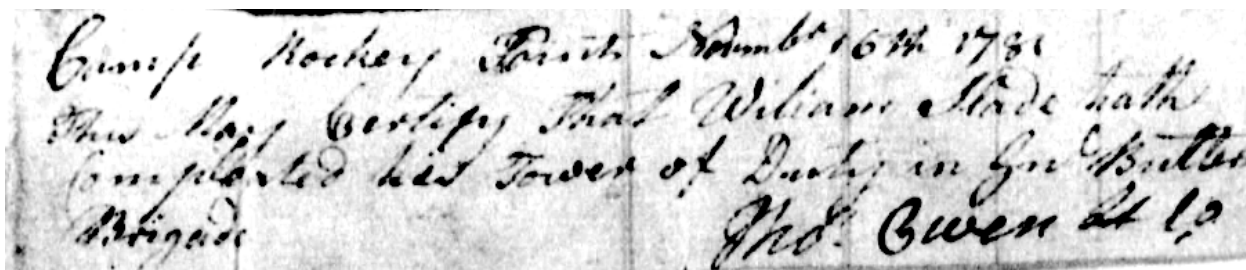 Camp Rockey Point Novmbr 16th 1781
This May Certify That Wiliam Slade hath
Compleated his Tower of Duty in Gnl Butler
Brigade Thos. Owen Lt Co